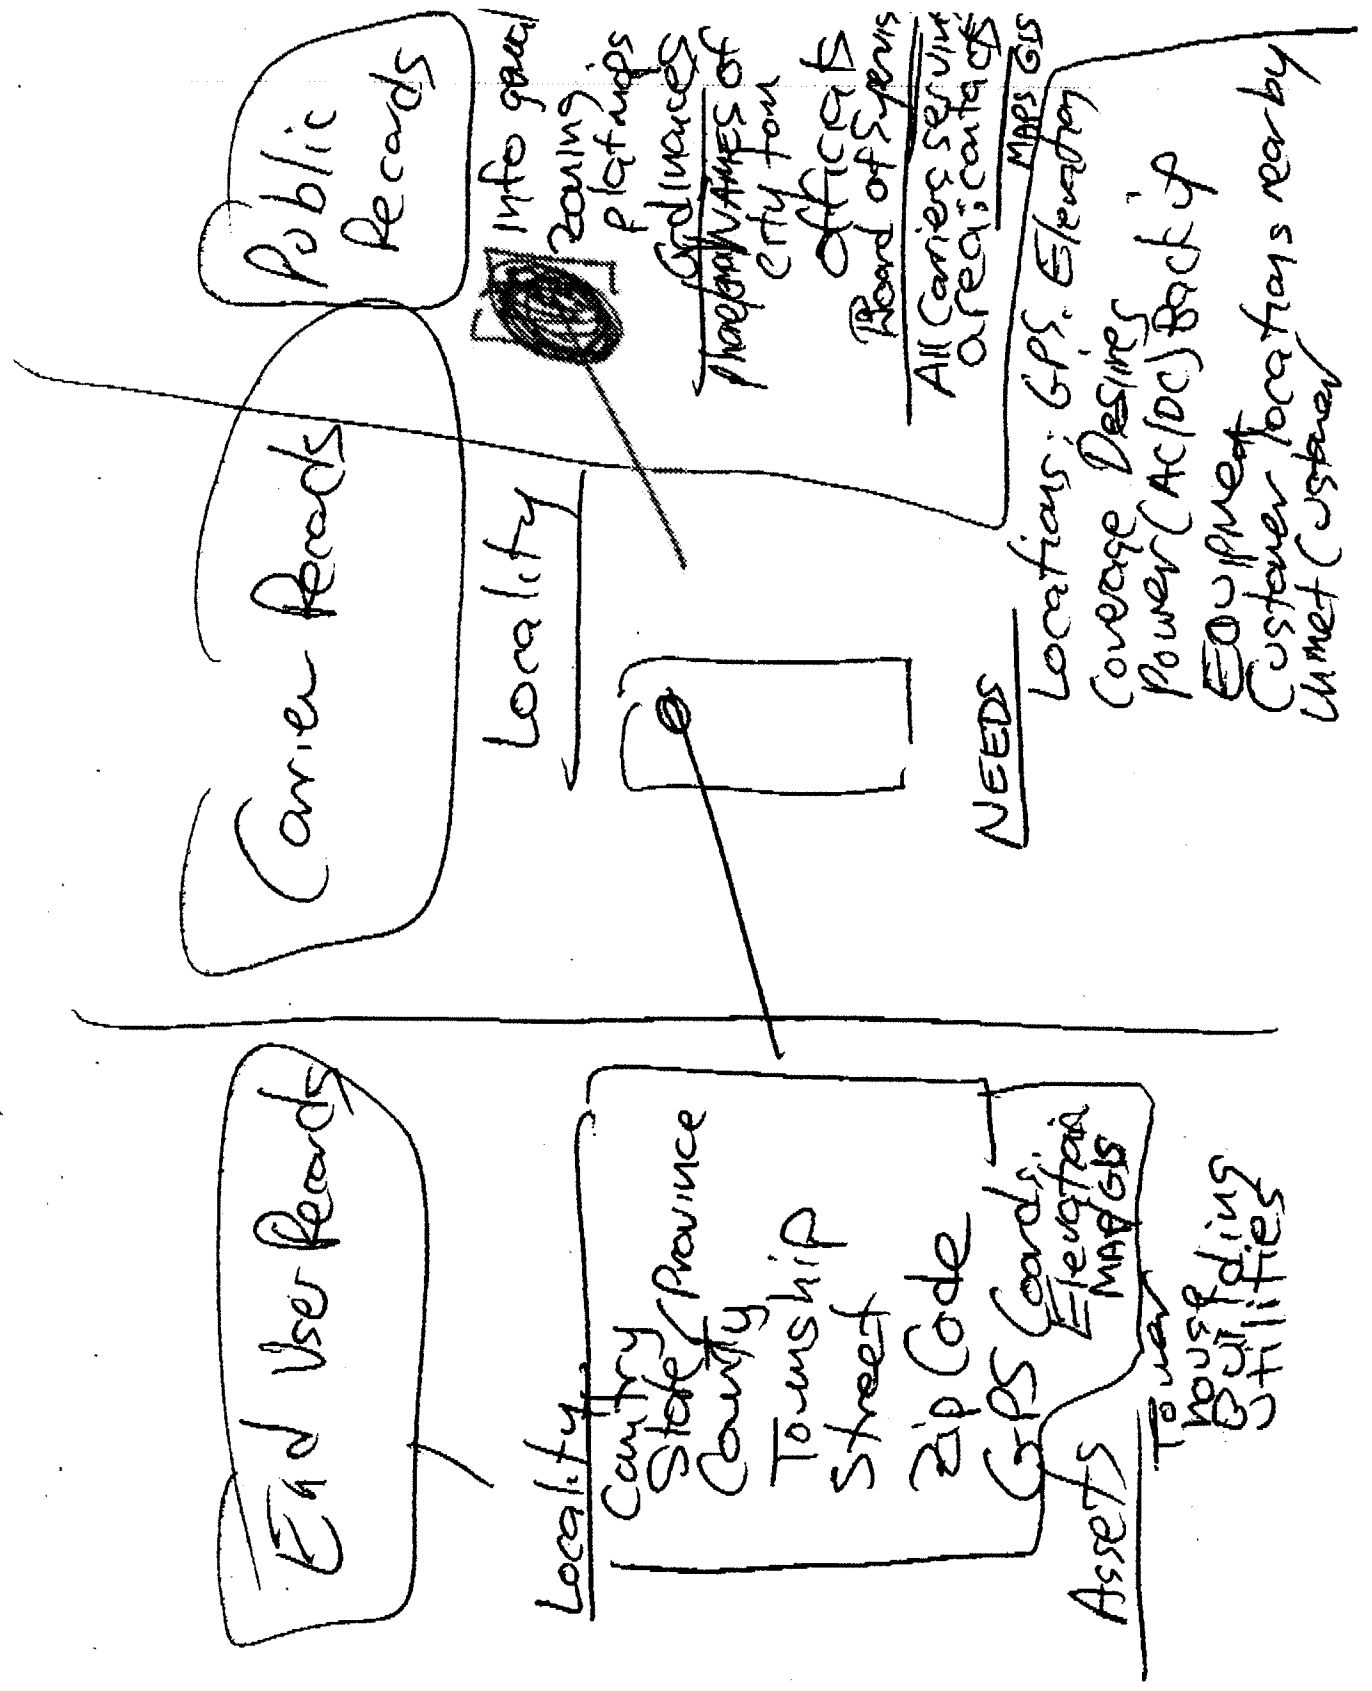 End User Records
Locality
Country
State/Province
County
Township
Street
Zip Code
GPS Coords.
Elevation
MAP/GIS
Assets
Tower
house
Building
Utilities
Carrier Records
Locality
NEEDS
Locations: GPS. Elevation
Coverage Desires
Power (AC/DC) Back up
EQuipment
Customer locations near by
Unmet Customer
Public
Records
Info
zoning
plat maps
Ordinances
phone/email NAMES of
city town
officials
Board of Supervis
All Carriers servin
area; contacts
MAPS GIS